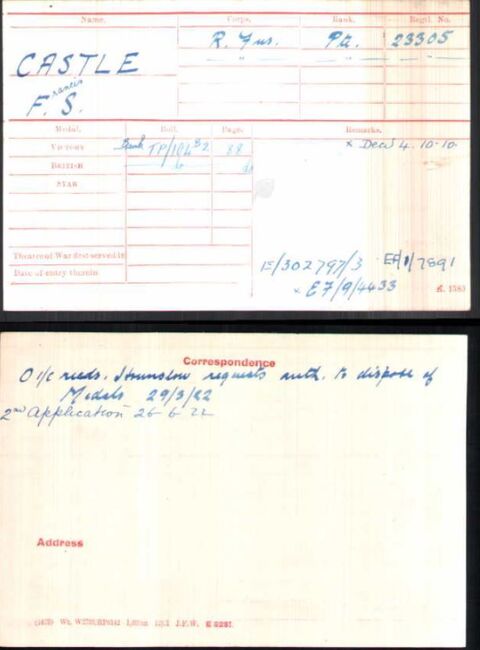 Name. Corps. Rank. Regtl. No.
CASTLE R. Fus. Pte. 23305
" " "
Francis
F. S.
Medal. Roll. Page. Remarks.
VICTORY TP/104 B2 88 x Decd 4.10.10.
BRITISH do do
STAR
Theatre of War first served in
Date of entry therein
E/302797/3 EF/1/7891
x E7/9/4433
K. 1380
Correspondence
O i/c recds. Hounslow requests auth. to dispose of
Medals 29/3/22
2nd Application 26 6 22
Address
J.F.W.